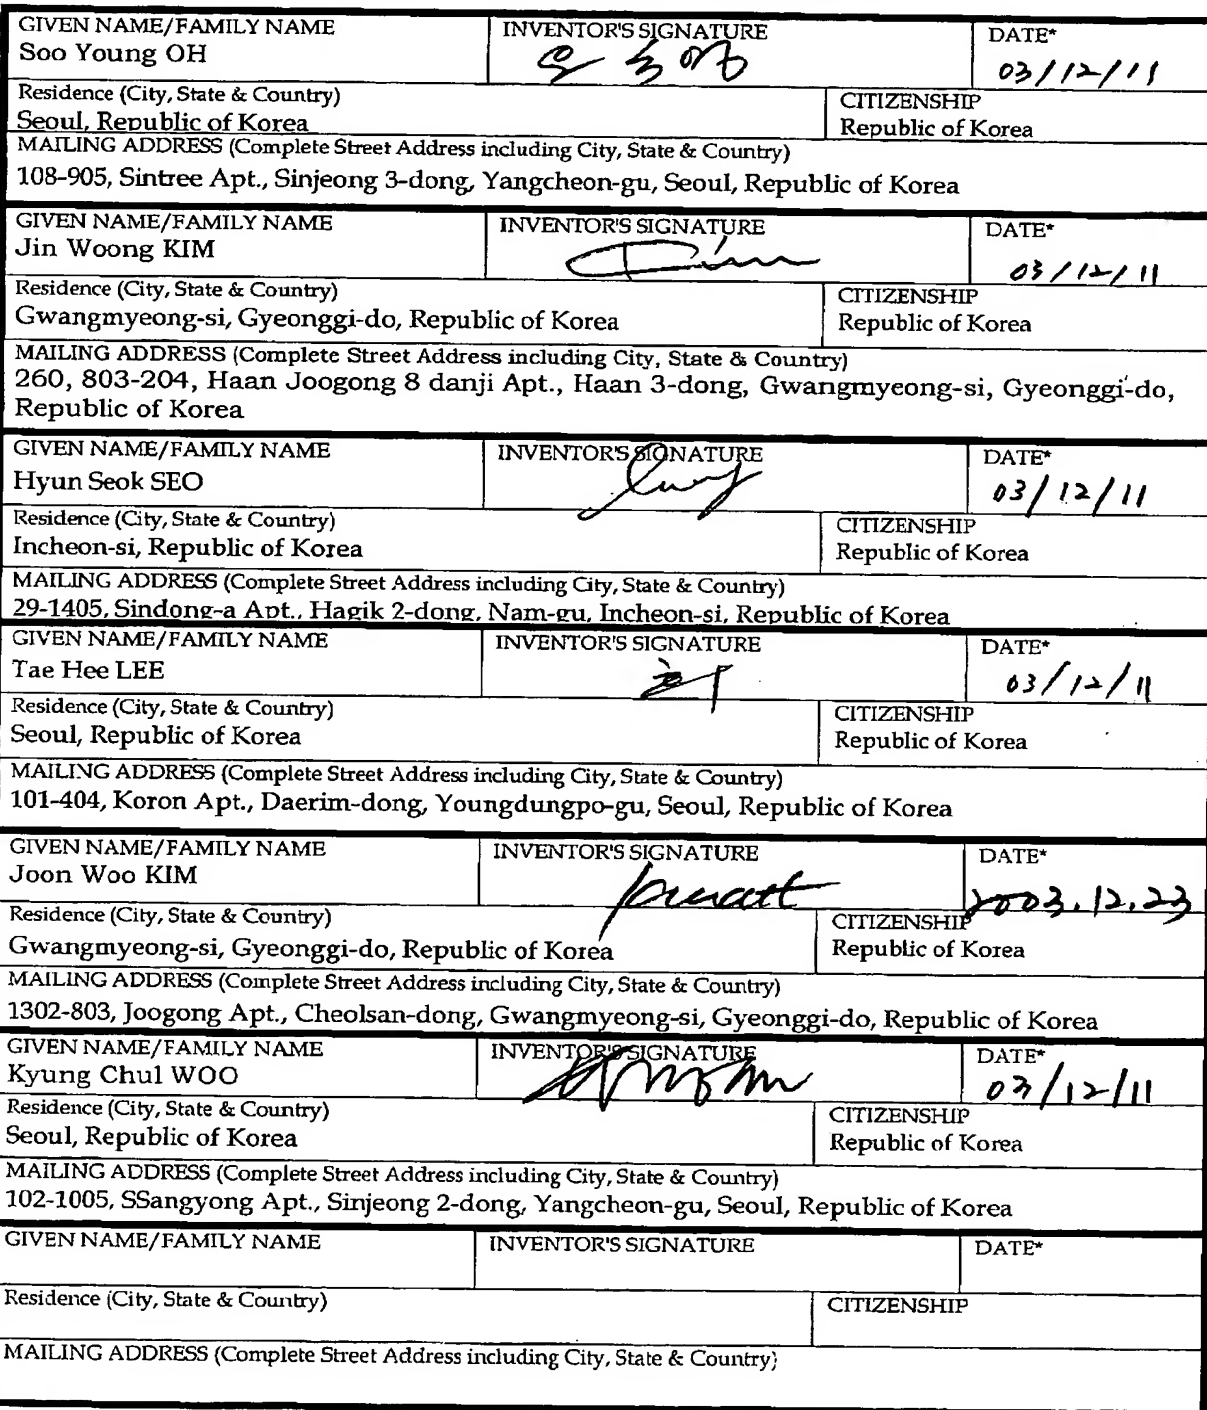 GIVEN NAME/FAMILY NAME INVENTOR'S SIGNATURE DATE*
Soo Young OH 03/12/11
Residence (City, State & Country) CITIZENSHIP
Seoul, Republic of Korea Republic of Korea
MAILING ADDRESS (Complete Street Address including City, State & Country)
108-905, Sintree Apt., Sinjeong 3-dong, Yangcheon-gu, Seoul, Republic of Korea
GIVEN NAME/FAMILY NAME INVENTOR'S SIGNATURE DATE*
Jin Woong KIM Kim 03/12/11
Residence (City, State & Country) CITIZENSHIP
Gwangmyeong-si, Gyeonggi-do, Republic of Korea Republic of Korea
MAILING ADDRESS (Complete Street Address including City, State & Country)
260, 803-204, Haan Joogong 8 danji Apt., Haan 3-dong, Gwangmyeong-si, Gyeonggi-do,
Republic of Korea
GIVEN NAME/FAMILY NAME INVENTOR'S SIGNATURE DATE*
Hyun Seok SEO 03/12/11
Residence (City, State & Country) CITIZENSHIP
Incheon-si, Republic of Korea Republic of Korea
MAILING ADDRESS (Complete Street Address including City, State & Country)
29-1405, Sindong-a Apt., Hagik 2-dong, Nam-gu, Incheon-si, Republic of Korea
GIVEN NAME/FAMILY NAME INVENTOR'S SIGNATURE DATE*
Tae Hee LEE 희 03/12/11
Residence (City, State & Country) CITIZENSHIP
Seoul, Republic of Korea Republic of Korea
MAILING ADDRESS (Complete Street Address including City, State & Country)
101-404, Koron Apt., Daerim-dong, Youngdungpo-gu, Seoul, Republic of Korea
GIVEN NAME/FAMILY NAME INVENTOR'S SIGNATURE DATE*
Joon Woo KIM 2003.12.23
Residence (City, State & Country) CITIZENSHIP
Gwangmyeong-si, Gyeonggi-do, Republic of Korea Republic of Korea
MAILING ADDRESS (Complete Street Address including City, State & Country)
1302-803, Joogong Apt., Cheolsan-dong, Gwangmyeong-si, Gyeonggi-do, Republic of Korea
GIVEN NAME/FAMILY NAME INVENTOR'S SIGNATURE DATE*
Kyung Chul WOO 03/12/11
Residence (City, State & Country) CITIZENSHIP
Seoul, Republic of Korea Republic of Korea
MAILING ADDRESS (Complete Street Address including City, State & Country)
102-1005, SSangyong Apt., Sinjeong 2-dong, Yangcheon-gu, Seoul, Republic of Korea
GIVEN NAME/FAMILY NAME INVENTOR'S SIGNATURE DATE*
Residence (City, State & Country) CITIZENSHIP
MAILING ADDRESS (Complete Street Address including City, State & Country)